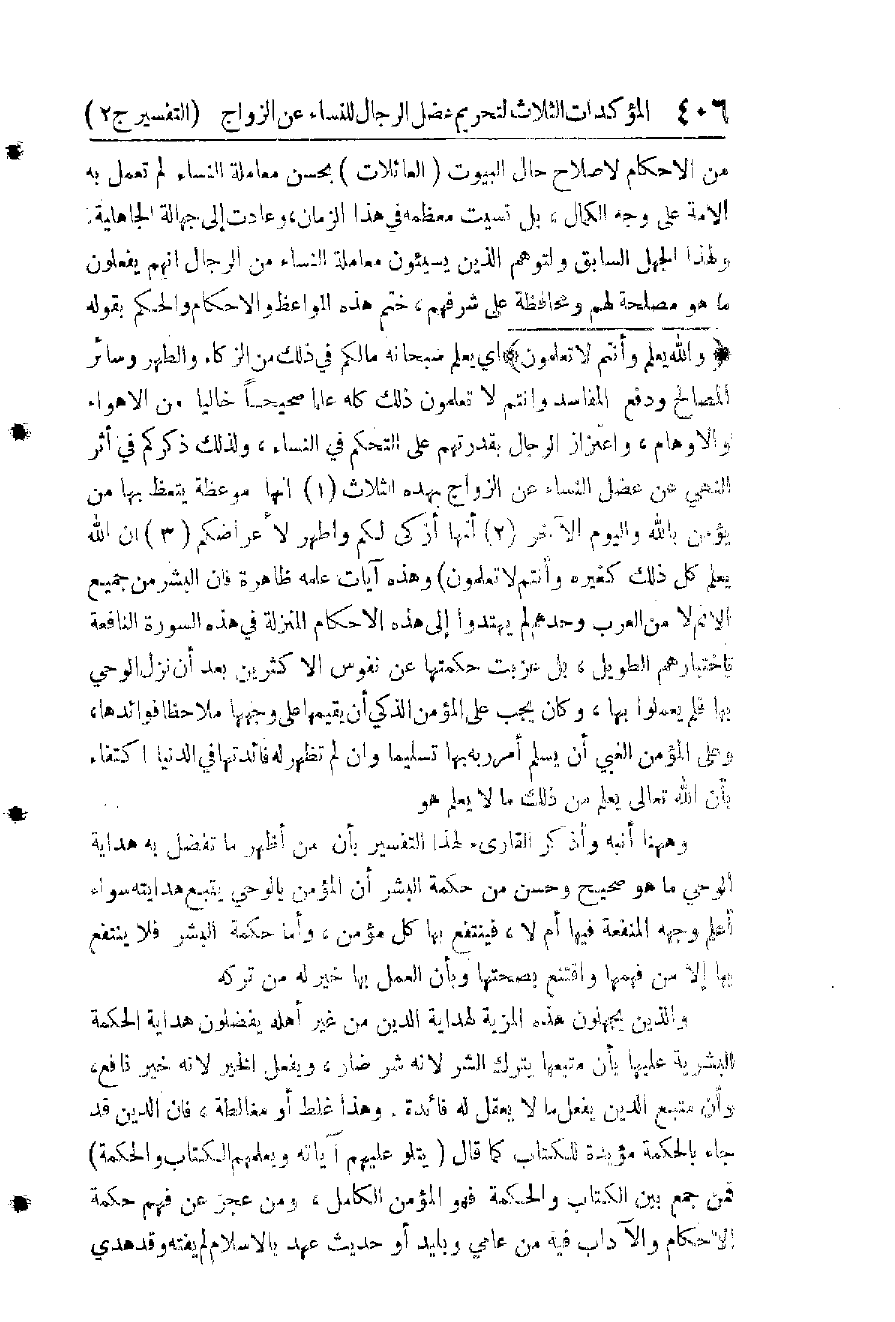 ٤٠٦ المؤكدات الثلاث لتحريم عضل الرجال للنساء عن الزواج (التفسير ج٢)
من الاحكام لاصلاح حال البيوت ( العائلات ) بحسن معاملة النساء لم تعمل به
الامة على وجه الكمال ، بل نسيت معظمه في هذا الزمان، وعادت إلى جهالة الجاهلية.
ولهذا الجهل السابق ولتوهم الذين يسيئون معاملة النساء من الرجال انهم يفعلون
ما هو مصلحة لهم ومحافظة على شرفهم ، ختم هذه المواعظ والاحكام والحكم بقوله
﴿ والله يعلم وأنتم لا تعلمون﴾ اي يعلم سبحانه مالكم في ذلك من الزكاء والطهر وسائر
المصالح ودفع المفاسد وانتم لا تعلمون ذلك كله علما صحيحاً خاليا من الاهواء
والاوهام ، واعتزاز الرجال بقدرتهم على التحكم في النساء ، ولذلك ذكركم في أثر
النهي عن عضل النساء عن الزواج بهذه الثلاث (١) انها موعظة يتعظ بها من
يؤمن بالله واليوم الآخر (٢) أنها أزكى لكم واطهر لأعراضكم (٣) ان الله
يعلم كل ذلك كغيره وأنتم لا تعلمون) وهذه آيات علمه ظاهرة فان البشر من جميع
الامم لا من العرب وحدهم لم يهتدوا إلى هذه الاحكام المنزلة في هذه السورة النافعة
باختبارهم الطويل ، بل عزبت حكمتها عن نفوس الاكثرين بعد أن نزل الوحي
بها فلم يعملوا بها ، وكان يجب على المؤمن الذكي أن يقيمها على وجهها ملاحظا فوائدها،
وعلى المؤمن الغبي أن يسلم أمر ربه بها تسليما وان لم تظهر له فائدتها في الدنيا اكتفاء
بأن الله تعالى يعلم من ذلك ما لا يعلم هو
وههنا أنبه وأذكر القارىء لهذا التفسير بأن من أظهر ما تفضل به هداية
الوحي ما هو صحيح وحسن من حكمة البشر أن المؤمن بالوحي يتبع هدايته سواء
أعلم وجهه المنفعة فيها أم لا ، فينتفع بها كل مؤمن ، وأما حكمة البشر فلا ينتفع
بها إلا من فهمها واقتنع بصحتها وبأن العمل بها خير له من تركه
والذين يجهلون هذه المزية لهداية الدين من غير أهله يفضلون هداية الحكمة
البشرية عليها بأن متبعها يترك الشر لانه شر ضار ، ويفعل الخير لانه خير نافع،
وأن متبع الدين يفعل ما لا يعقل له فائدة . وهذا غلط أو مغالطة ، فان الدين قد
جاء بالحكمة مؤيدة للكتاب كما قال ( يتلو عليهم آياته ويعلمهم الكتاب والحكمة)
فمن جمع بين الكتاب والحكمة فهو المؤمن الكامل ، ومن عجز عن فهم حكمة
الاحكام والآداب فيه من عامي وبليد أو حديث عهد بالاسلام لم يفته وقد هدي